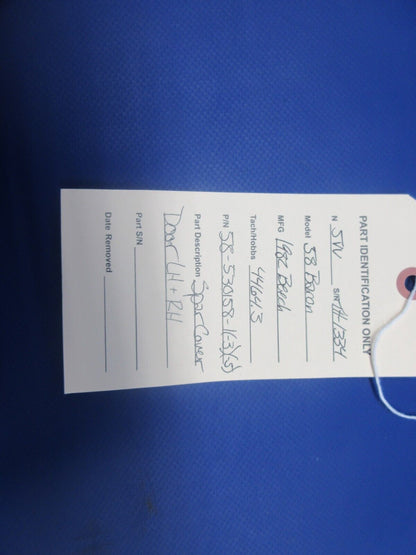 PART IDENTIFICATION ONLY
N 5W S/N TH-1334
Model 58 Baron
MFG 1982 Beech
Tach/Hobbs 4464.3
P/N 58-530158-1(-3)(-5)
Part Description Spar Cover
Door LH + RH
Part S/N
Date Removed